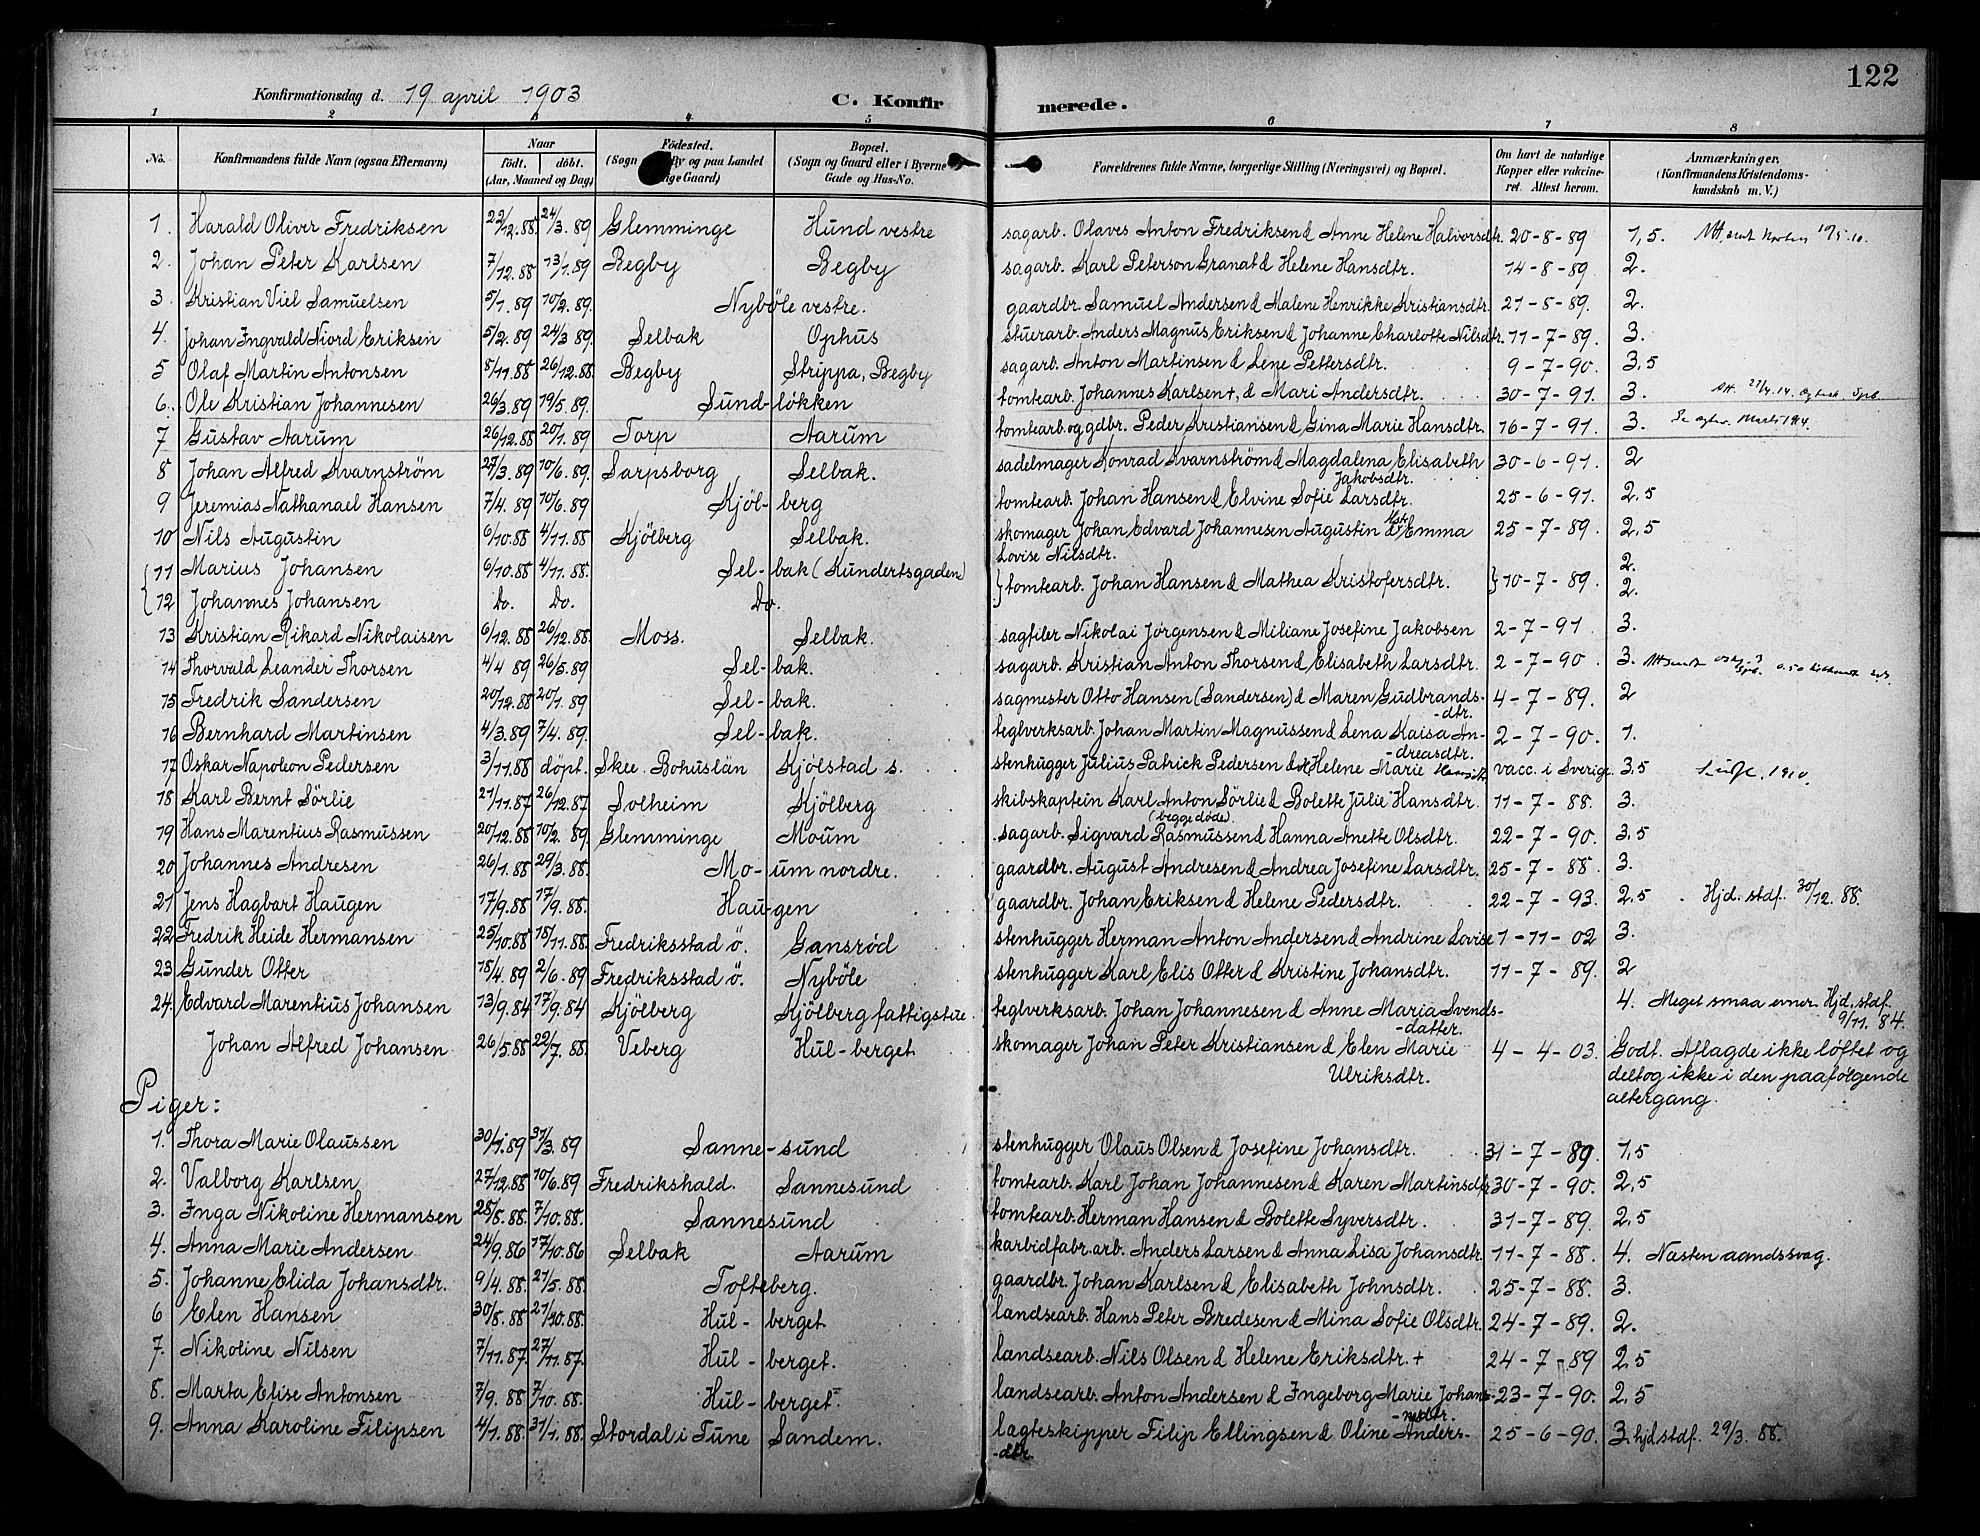 122
Konfirmationsdag d. 19 april 1903 C. Konfirmerede.
1 2 3 4 5 6 7 8
No. Konfirmandens fulde Navn (ogsaa Efternavn) Naar født, døbt. (Aar, Maaned og Dag) Fødested. (Sogn By og paa Landet ige Gaard) Bopæl. (Sogn og Gaard eller i Byerne Gade og Hus-No. Forældrenes fulde Navne, borgerlige Stilling (Næringsvei) og Bopæl. Om havt de naturlige Kopper eller vakcineret. Attest herom. Anmærkninger, (Konfirmandens Kristendomskundskab m. V.)
1. Harald Oliver Fredriksen 22/12.88 24/3.89 Glemminge Hund vestre sagarb. Olaves Anton Fredriksen & Anne Helene Halvorsdtr. 20-8-89 1,5.
2. Johan Peter Karlsen 7/12.88 13/1.89 Begby Begby sagarb. Karl Peterson Granat & Helene Hansdtr. 14-8-89 2.
3. Kristian Viel Samuelsen 5/1.89 10/2.89. Nyböle vestre. gaardbr. Samuel Andersen & Malene Henrikke Kristiansdtr. 21-8-89. 2.
4. Johan Ingvald Niord Eriksen 5/2.89 24/3 89. Selbak Ophus stuerarb. Anders Magnus Eriksen & Johanne Charlotte Nilsdtr. 11-7-89. 3.
5 Olaf Martin Antonsen 8/11.88 26/12.88. Begby Strippa, Begby sagarb. Anton Martinsen & Lene Pettersdtr. 9-7-90. 3,5
6. Ole Kristian Johannesen 26/3.89 19/5.89. Sund-løkken tomtearb. Johannes Karlsen+, & Mari Andersdtr. 30-7-91. 3.
7 Gustav Aarum 26/12.88 20/1.89 Torp Aarum tomtearb. og gdbr. Peder Kristiansen & Gina Marie Hansdtr. 16-7-91. 3.
8 Johan Alfred Kvarnström 27/3.89 10/6.89 Sarpsborg Selbak. sadelmager Konrad Kvarnström & Magdalena Elisabeth Jakobsdtr. 30-6-91. 2
9 Jeremias Nathanael Hansen 7/4.89 10/6.89 Kjöl-berg tomtearb. Johan Hansen & Elvine Sofie Larsdtr. 25-6-91. 2,5
10 Nils Augustin 6/10.88 4/11.88 Kjölberg Selbak. skomager Johan Edvard Johannesen Augustin & Emma Lovise Nilsdtr. 25-7-89. 2,5
11 Marius Johansen 6/10.88 4/11.88. Sel-bak (Kundertsgaden) tomtearb. Johan Hansen & Mathea Kristofersdtr. 10-7-89. 2.
12 Johannes Johansen Do. Do. Do. 2.
13 Kristian Rikard Nikolaisen 6/12.88 26/12.88. Moss. Selbak. sagfiler Nikolai Jörgensen & Miliane Josefine Jakobsen 2-7-91 3.
14 Thorvald Leander Thorsen 4/4 89 26/5.89 Sel-bak. sagarb. Kristian Anton Thorsen & Elisabeth Larsdtr. 2-7-90. 3.
15 Fredrik Sandersen 20/12.88 20/1.89 Sel-bak. sagmester Otto Hansen (Sandersen) & Maren Gudbrands-dtr. 4-7-89. 2
16 Bernhard Martinsen 4/3.89 7/4.89. Sel-bak. teglverksarb. Johan Martin Magnussen & Lena Kaisa An-dreasdtr. 2-7-90. 1.
17 Oskar Napoleon Pedersen 3/11.88 döpt. Skee Bohuslän Kjölstad s. stenhugger Julius Patrick Pedersen & Helene Marie Hansdtr. vacc. i Sverige 3,5
18 Karl Bernt Sörlie 21/11.87 26/12.87 Solheim Kjölberg skibskaptein Karl Anton Sörlie & Bolette Julie Hansdtr. (begge døde). 11-7-88. 3.
19 Hans Marentius Rasmussen 20/12.88 10/2.89. Glemminge Moum sagarb. Sigvard Rasmussen & Hanna Anette Olsdtr. 22-7-90. 3,5
20 Johannes Andresen 26/1.88 29/3.88. Mo-um nordre. gaardbr. August Andresen & Andrea Josefine Larsdtr. 25-7-88 3.
21 Jens Hagbart Haugen 17/9.88 17/9.88. Hau-gen gaardbr. Johan Eriksen & Helene Pedersdtr. 22-7-93. 2,5 Hjd. stdf. 30/12.88.
22 Fredrik Heide Hermansen 25/10.88 18/11.88. Fredriksstad ö. Gansröd stenhugger Herman Anton Andersen & Andrine Lovise 1-11-02 3.
23 Gunder Otter 18/4.89 2/6.89 Fredriksstad ö. Nyböle stenhugger Karl Elis Otter & Kristine Johansdtr. 11-7-89. 2
24. Edvard Marentius Johansen 13/9.84 17/9.84 Kjölberg Kjölberg fattigstue teglverksarb. Johan Johannesen & Anne Maria Svends-datter. 4. Meget smaa evner. Hjd. stdf. 9/11.84.
Johan Alfred Johansen 26/5.88 22/7.88. Veberg Hul-berget skomager Johan Peter Kristiansen & Elen Marie Ulriksdtr. 4-4-03. Godt. Aflagde ikke löftet og deltog ikke i den paafølgende altergang.
Piger:
1. Thora Marie Olaussen 30/1.89 31/3.89 Sanne-sund stenhugger Olaus Olsen & Josefine Johansdtr. 31-7-89. 1,5
2. Valborg Karlsen 27/12.88 10/6.89 Fredrikshald. Sannesund tomtearb. Karl Johan Johannesen & Karen Martinsdtr. 30-7-90. 2,5
3. Inga Nikoline Hermansen 28/8.88. 7/10.88. Sannesund tomtearb. Herman Hansen & Bolette Syversdtr. 31-7-89. 2,5
4. Anna Marie Andersen 24/9.86 17/10.86 Selbak Aarum karbidfabr.arb. Anders Larsen & Anna Lisa Johansdtr. 11-7-88. 4. Næsten aandssvag.
5. Johanne Elida Johansdtr. 9/4.88. 21/5.88. Tofteberg. gaardbr. Johan Karlsen & Elisabeth Johnsdtr. 25-7-88. 3.
6 Elen Hansen 30/8.88 21/10.88. Hul-berget. landsearb. Hans Peter Bredesen & Mina Sofie Olsdtr. 24-7-89. 2.
7. Nikoline Nilsen 7/11.87. 27/11.87. Hul-berget. landsearb. Nils Olsen & Helene Eriksdtr. + 24-7-89 2,5
8. Marta Elise Antonsen 7/9.88 7/10.88. Hul-berget. landsearb. Anton Andersen & Ingeborg Marie Johans- 23-7-90. 2,5
9. Anna Karoline Filipsen 4/1.88. 31/1.88. Stordal i Tune Sandem. lægteskipper Filip Ellingsen & Oline Anders-dtr. 25-6-90. 3. hjd. stdf. 29/3.88.